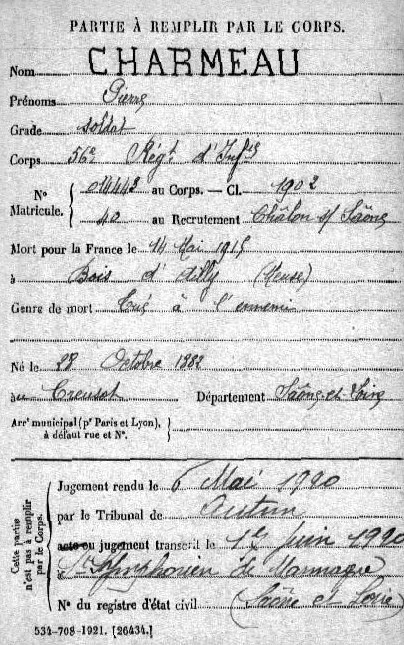 PARTIE À REMPLIR PAR LE CORPS.
Nom CHARMEAU
Prénoms Pierre
Grade soldat
Corps 56e Régt d'Infie
N° Matricule. { 014443 au Corps. — Cl. 1902
40 au Recrutement Châlon s/ Saône
Mort pour la France le 14 Mai 1915
à Bois d'Ailly (Meuse)
Genre de mort Tué à l'ennemi
Né le 28 Octobre 1882
au Creusot Département Saône-et-Loire
Arrt municipal (pr Paris et Lyon), à défaut rue et N°. }
Cette partie n'est pas à remplir par le Corps.
Jugement rendu le 6 Mai 1920
par le Tribunal de Autun
acte ou jugement transcrit le 1er Juin 1920
à St Symphorien de Marmagne
N° du registre d'état civil (Saône et Loire)
534-708-1921. [26434.]